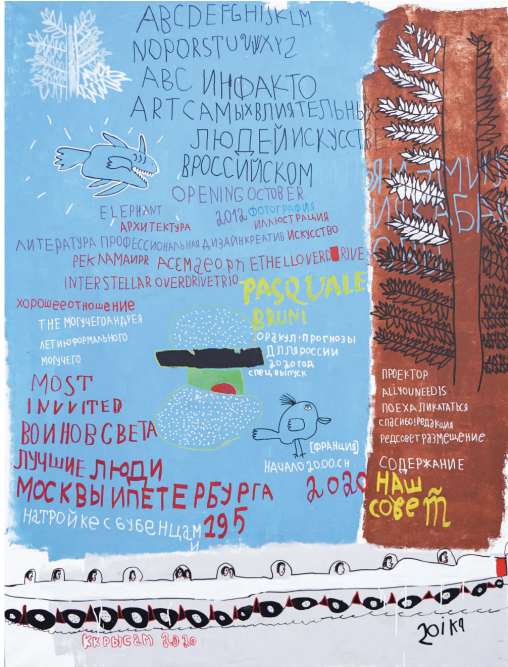 ABCDEFGHIJKLM
NOPQRSTUVWXYZ
ABC ИНФАКТО
ART САМЫХ ВЛИЯТЕЛЬНЫХ
ЛЮДЕЙ ИСКУССТВЕ
ВРОССИЙСКОМ
OPENING OCTOBER
ELEPHANT 2012 ФОТОГРАФИЯ
АРХИТЕКТУРА ИЛЛЮСТРАЦИЯ
ЛИТЕРАТУРА ПРОФЕССИОНАЛЬНАЯ ДИЗАЙН КРЕАТИВ ИСКУССТВО
РЕКЛАМАИPR
INTERSTELLAR OVERDRIVE TRIO
PASQUALE
BRUNI
ХОРОШЕЕ ОТНОШЕНИЕ
THE МОГУЧЕГО АНДРЕЯ
ЛЕТ НЕФОРМАЛЬНОГО
МОГУЧЕГО
ОРАКУЛ·ПРОГНОЗЫ
ДЛЛАРОССИИ
2020 ГОД
СПЕЦ ВЫПУСК
MOST
INVVITED
ВОИНОВ СВЕТА
ЛУЧШИЕ ЛЮДИ
МОСКВЫ И ПЕТЕРБУРГА 2020
НА ТРОЙКЕ С БУБЕНЦАМИ 195
[ФРАНЦИЯ]
НАЧАЛО 20.00.СН
ПРОЕКТОР
ALLYOUNEEDIS
ПОЕХАЛИ КАТАТЬСЯ
СПАСИБО! РЕДАКЦИЯ
РЕДСОВЕТ РАЗМЕЩЕНИЕ
СОДЕРЖАНИЕ
НАШ
СОВЕТ
ККРЫСАМ 2020